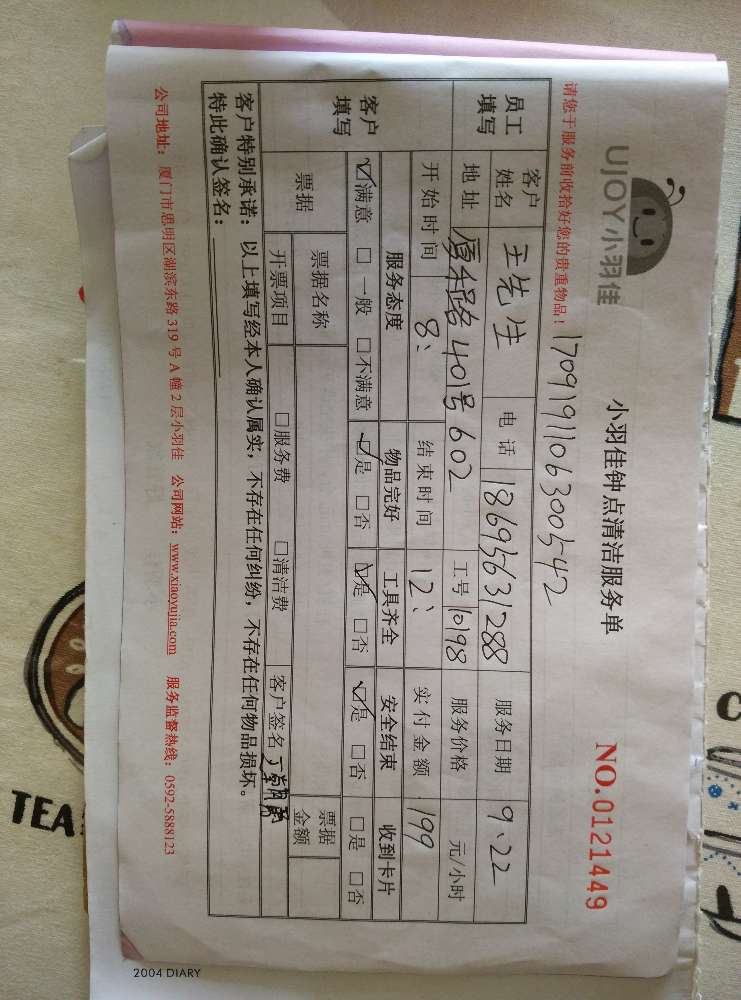 UJOY小羽佳
小羽佳钟点清洁服务单
NO.0121449
请您于服务前收拾好您的贵重物品！
1709191106300542
员工填写 客户姓名 王先生 电话 18695631288 服务日期 9、22
地址 401号602 工号 10198 服务价格 元/小时
客户填写 开始时间 8： 结束时间 12： 实付金额 199
服务态度 物品完好 工具齐全 安全结束 收到卡片
☑满意 □一般 □不满意 ☑是 □否 ☑是 □否 ☑是 □否 □是 □否
票据 票据名称 票据金额
开票项目 □服务费 □清洁费 客户签名
客户特别承诺：以上填写经本人确认属实，不存在任何纠纷，不存在任何物品损坏。
特此确认签名：
公司地址：厦门市思明区湖滨东路 319 号 A 幢 2 层小羽佳 公司网站：www.xiaoyujia.com 服务监督热线：0592-5888123
TEA
2004 DIARY